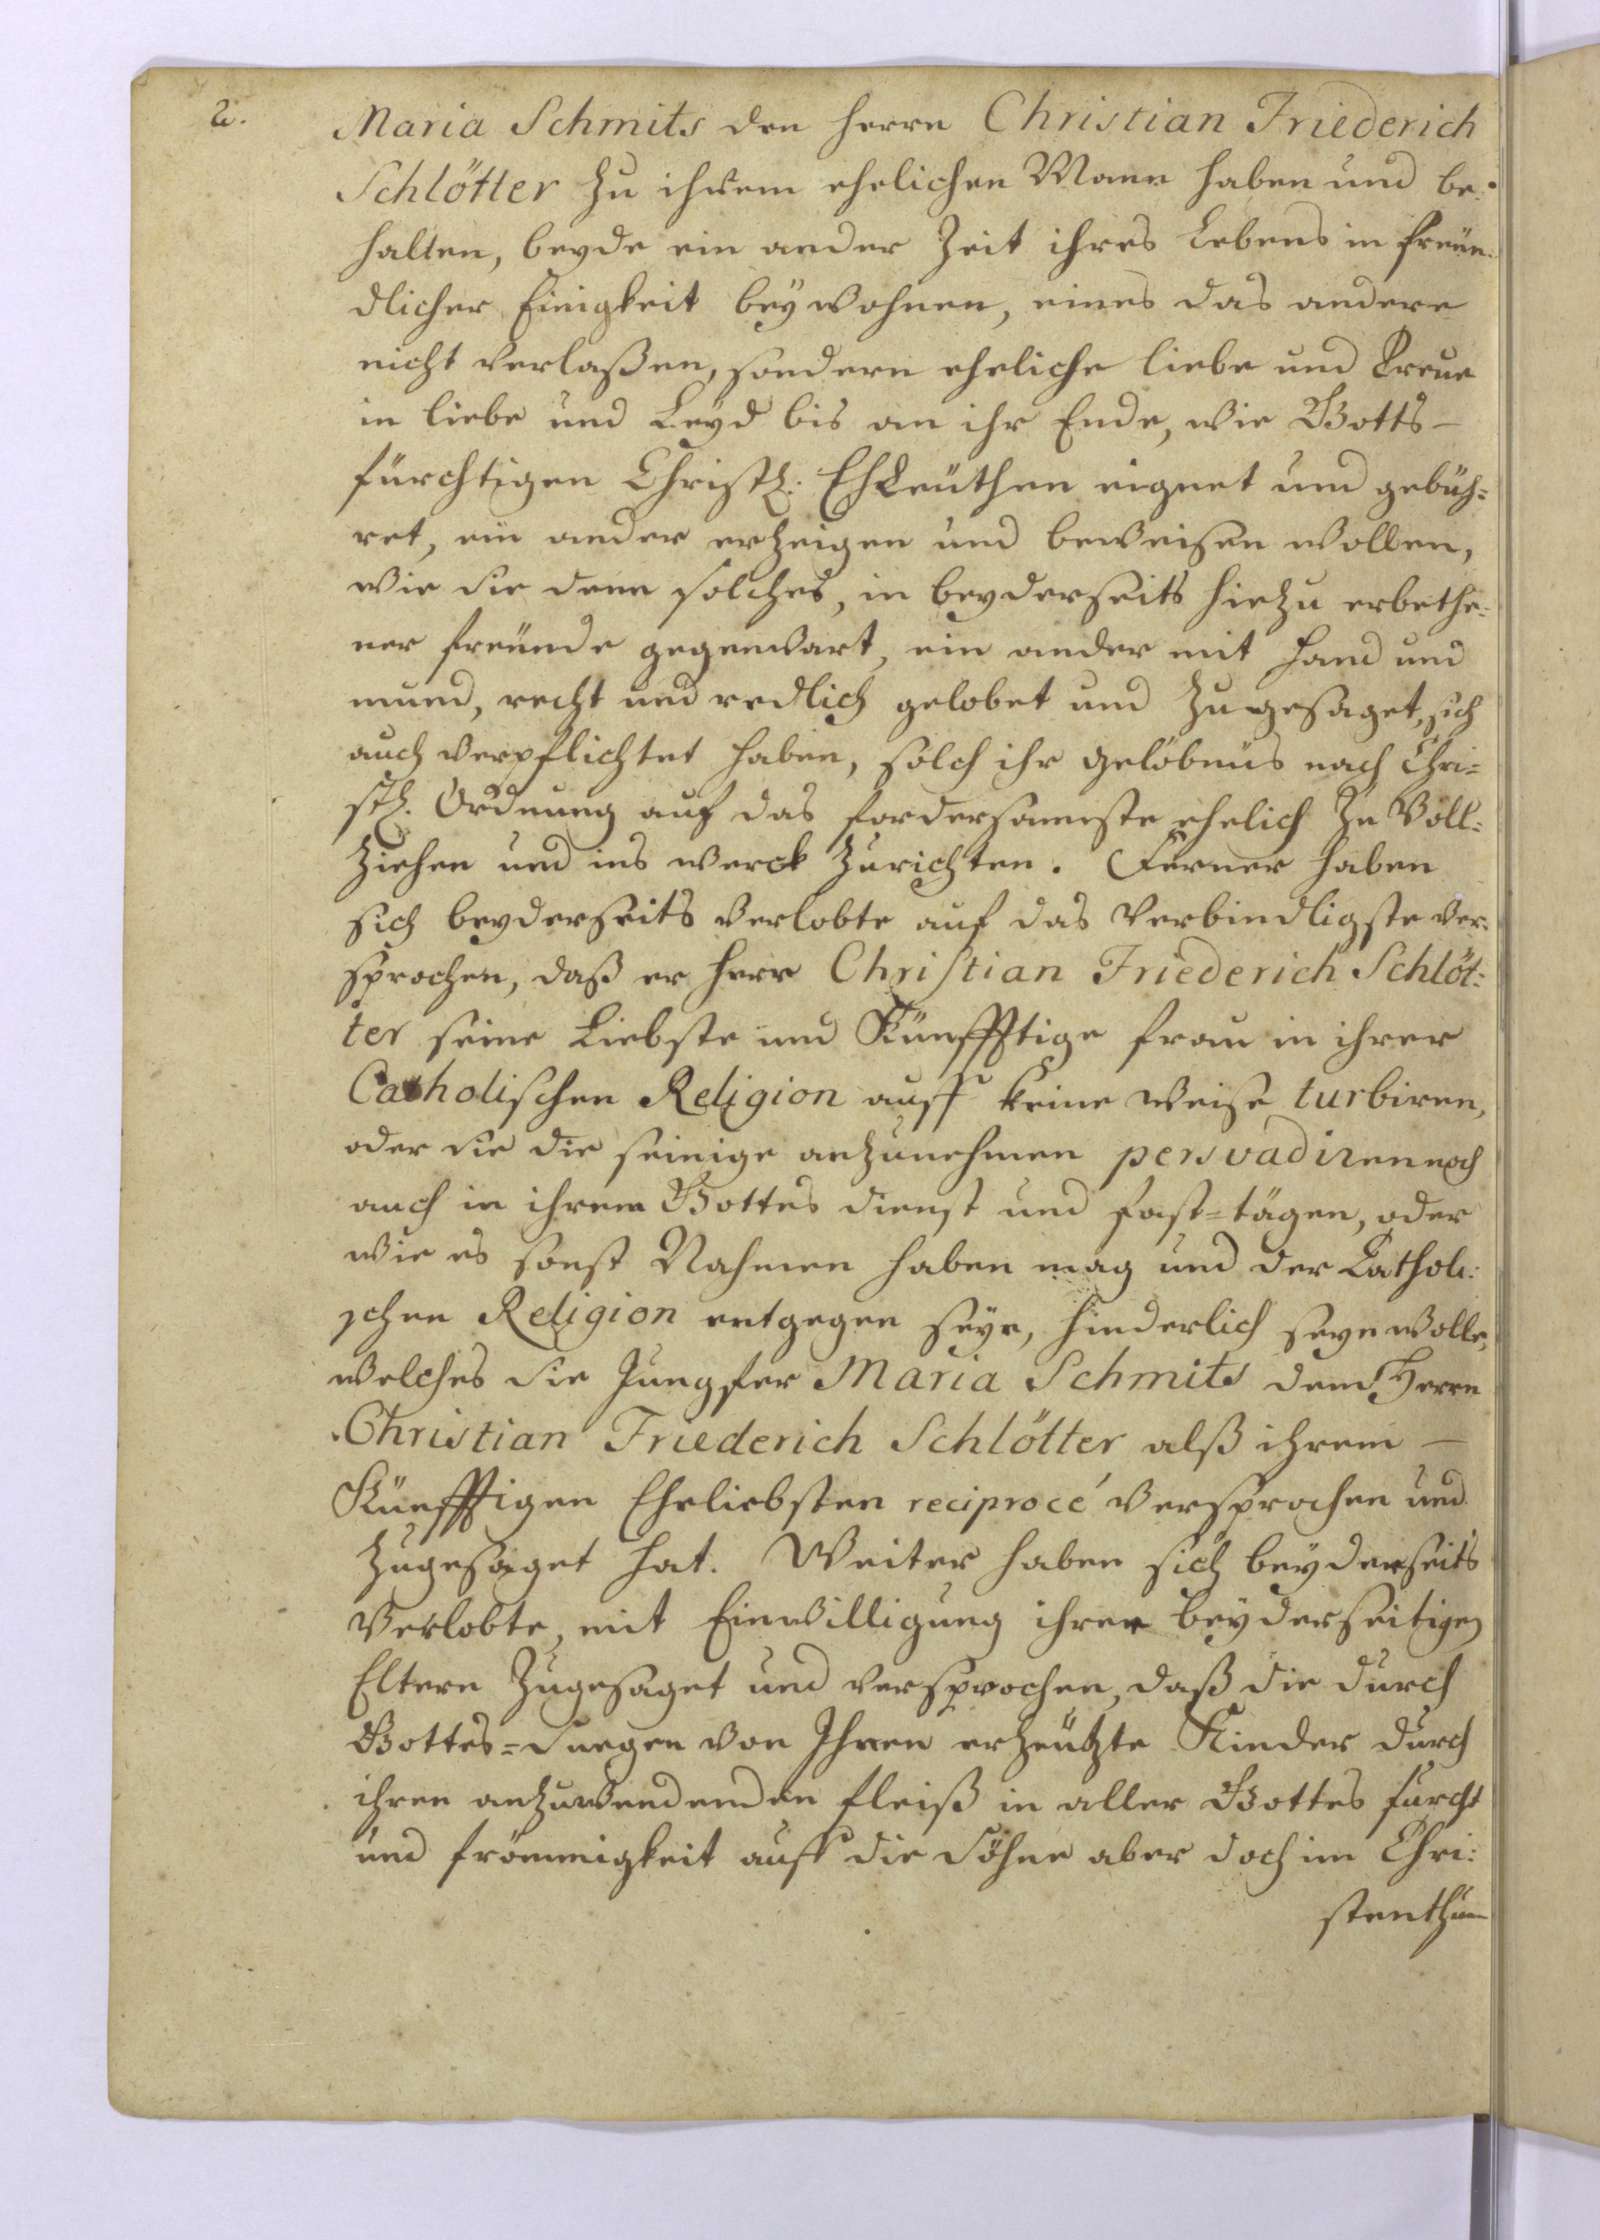 2.
Maria Schmits den Herrn Christian Friederich
Schlötter zu ihrem ehelichen Mann haben und be-
halten, beyde ein ander Zeit ihres Lebens in freün-
dlicher Einigkeit beÿ wohnen, eines das andere
nicht verlaßen, sondern eheliche liebe und Treue
in liebe und Leyd bis an ihr Ende, wie Gotts-
fürchtigen Christl: EhLeüthen eignet und gebüh=
ret, ein ander erzeigen und beweisen wollen,
wie sie denn solches, in beyderseits hiezu erbethe-
ner freünde gegenwart, ein ander mit Hand und
mund, recht und redlich gelobet und zu gesaget, sich
auch verpflichtet haben, solch ihr gelöbnüs nach Chri=
stl. Ordnung auf das fordersamste ehelich zu Voll=
ziehen und ins werck zurichten. Ferner haben
sich beyderseits Verlobte auf das Verbindligste ver-
sprochen, daß er Herr Christian Friederich Schlöt:
ter seine Liebste und Künfftige frau in ihrer
Catholischen Religion auff keine weise turbiren,
oder sie die seinige anzunehmen persvadiren noch
auch in ihrem Gottes dienst und fast=tägen, oder
wie es sonst Nahmen haben mag und der Catholi:
schen Religion entgegen seÿe, hinderlich seyn wolle,
welches die Jungfer Maria Schmits dem Herrn
Christian Friederich Schlötter alß ihrem -
Künfftigen Eheliebsten reciprocé versprochen und
zugesaget hat. Weiter haben sich beyderseits
Verlobte, mit Einwilligung ihrer beyderseitigen
Eltern zugesaget und versprochen, daß die durch
Gottes=Seegen von Ihnen erzeützte Kinder durch
ihren anzuwendenden fleiß in aller Gottes furcht
und frömmigkeit auff die Söhne aber doch im Chri:
stenthum